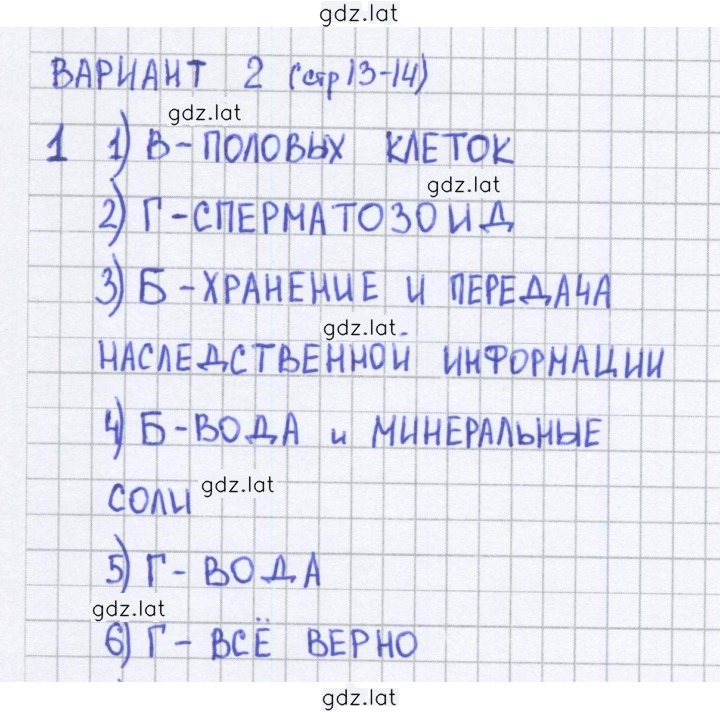 gdz.lat
ВАРИАНТ 2 (стр 13-14)
gdz.lat
1 1) В-ПОЛОВЫХ КЛЕТОК
gdz.lat
2) Г-СПЕРМАТОЗОИД
3) Б-ХРАНЕНИЕ И ПЕРЕДАЧА
gdz.lat
НАСЛЕДСТВЕННОЙ ИНФОРМАЦИИ
4) Б-ВОДА и МИНЕРАЛЬНЫЕ
СОЛИ
gdz.lat
5) Г-ВОДА
gdz.lat
6) Г-ВСЁ ВЕРНО
gdz.lat